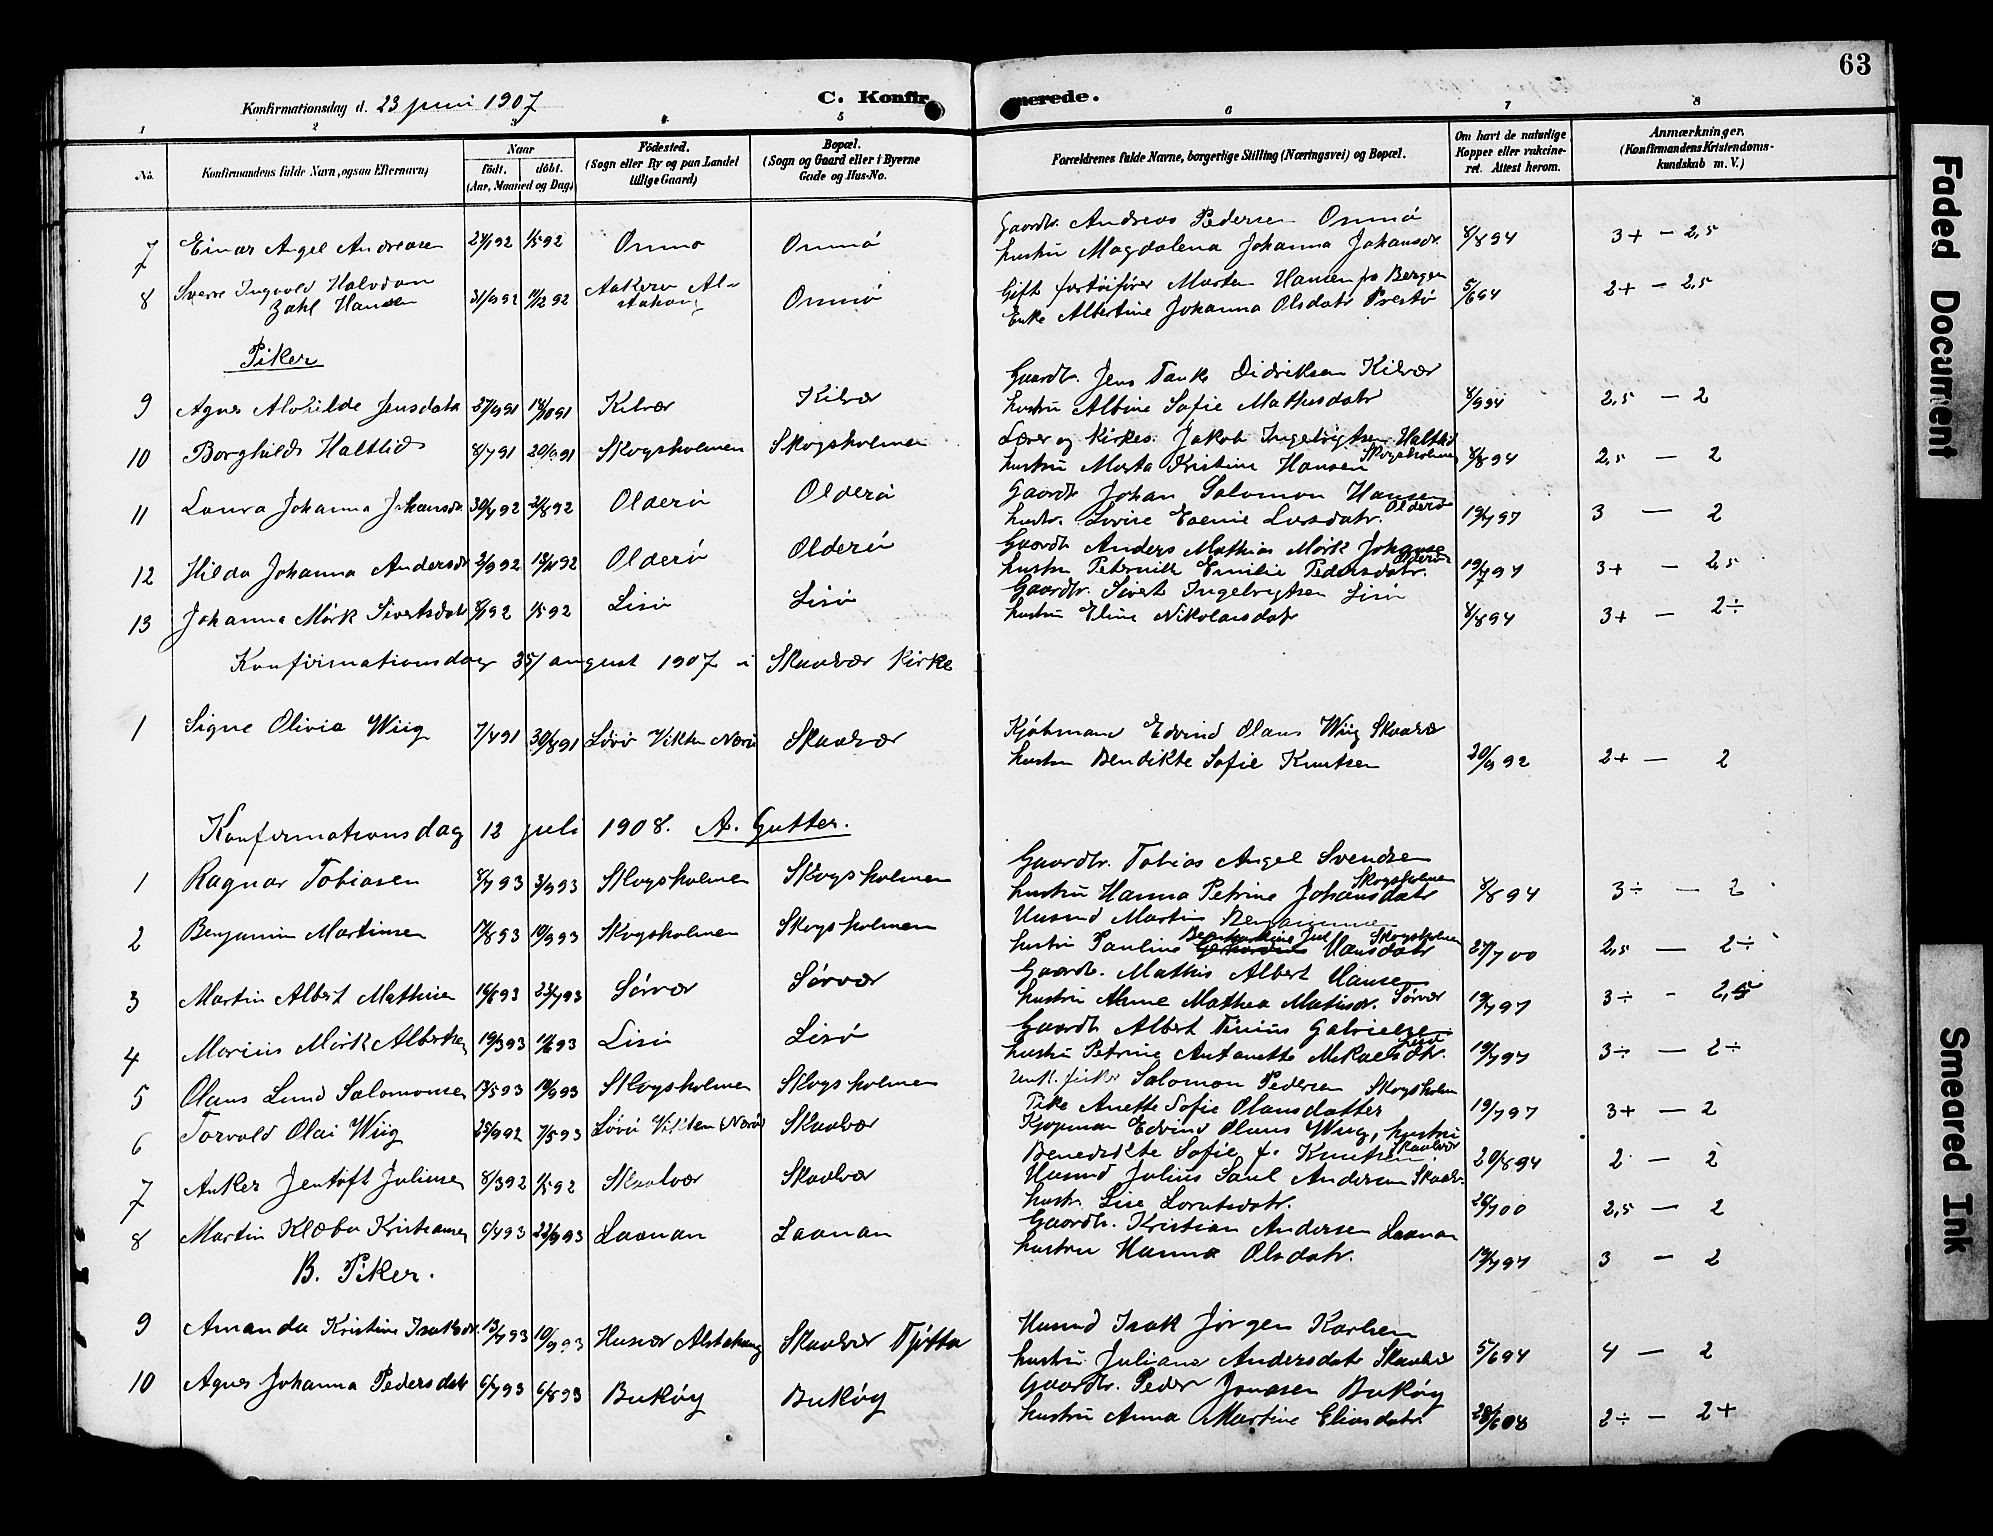 63
Konfirmationsdag d. 23 juni 1907
C. Konfir merede.
1 2 3 4 5 6 7 8
No. Konfirmandens fulde Navn, ogsaa Efternavn) Naar Födt. döbt. (Aar, Maaned og Dag) Födested. (Sogn eller By og paa Landet tillige Gaard) Bopæl. (Sogn og Gaard eller i Byerne Gade og Hus-No. Forældrenes fulde Navne, borgerlige Stilling (Næringsvei) og Bopæl. Om havt de naturlige Kopper eller vakcineret. Attest herom. Anmærkninger. (Konfirmandens Kristendomskundskab m. V.)
7 Einar Angel Andreasen 24/1 92 1/5 92 Onmo Onmö Gaardbr. Andreas Pedersen Onmö
hustru Magdalena Johanna Johansdr. 8/8 94 3+ – 2,5
8 Sverre Ingvold Halvdan Zahl Hansen 31/9 92 11/12 92 Alstahoug Onmö Gift Morten Hansen fra Bergen
Enke Albertine Johanna Olsdatr Prestö 5/6 94 2+ – 2,5
Piker
9 Agnes Alvhilde Jensdatr 27/9 91 18/10 91 Kilvær Kilvær Gaardbr. Jens Tank Didriksen Kilvær
hustru Albine Sofie Mathisdatr 8/9 94 2,5 – 2
10 Borghild Haltlid 8/7 91 20/9 91 Skogsholmen Skogsholmen Lærer og Kirkes. Jakob Ingebrigtsen Haltlid
hustru Marta Kristine Hansen Skogsholmen 8/8 94 2,5 – 2
11 Laura Johanna Johansdr 30/4 92 21/8 92 Olderö Olderö Gaardbr Johan Salomon Hansen
hustr. Lovise Larsdatr. Olderö 19/7 97 3 – 2
12 Hilda Johanna Andersdr 2/9 92 13/11 92 Olderö Olderö Gaardbr Anders Mathias Mörk Johanse
hustru Peternille Emilie Pedersdatr. Olderö 19/7 97 3+ – 2,5
13 Johanna Mörk Sivertsdatr 8/1 92 1/5 92 Lisö Lisö Gaardbr. Sivert Ingebrigtsen Lisö
hustru Eline Nikolaisdatr 8/8 94 3+ – 2÷
Konfirmationsdag 25/ august 1907 i Skaalvær Kirke
1 Signe Olivia Wiig 7/4 91 30/8 91 Lövö Vikten Nærö Skaalvær Kjöbmand Edvind Olaus Wiig Skaalvær
hustru Bendikte Sofie Knutsen 20/9 92 2+ – 2
Konfirmationsdag 12 juli 1908. A. Gutter.
1 Ragnar Tobiasen 8/7 93 3/9 93 Skogsholmen Skogsholmen Gaardbr. Tobias Angel Svendsen
hustru Hanna Petrine Johansdatr Skogsholmen 8/8 94 3÷ – 2
2 Benjamin Martinsen 17/8 93 10/9 93 Skogsholmen Skogsholmen Husmd Martin Benjaminsen
hustru Pauline Bernhardine Jul Hansdatr Skogsholmen 27/7 00 2,5 – 2÷
3 Martin Albert Mathisen 14/6 93 23/7 93 Sörvær Sörvær Gaardbr. Mathis Albert Hansen
hustru Anne Mathea Mathisdr. Sörvær 19/7 97 3÷ – 2,5
4 Marius Mörk Albertsen 19/3 93 11/6 93 Lisö Lisö Gaardbr Albert Tinius Gabrielsen
hustru Petrine Antonette Mikaelsdtr. Lisö 19/7 97 3÷ – 2÷
5 Olaus Lund Salomonsen 17/5 93 19/9 93 Skogsholmen Skogsholmen Unk. fisker Salomon Pedersen Skogsholm
Pike Anette Sofie Olausdatter 19/7 97 3+ – 2
6 Torvald Olai Wiig 25/9 92 7/5 93 Lövö Vikten Nærö Skaalvær Kjöpman Edvind Olaus Wiig, hustru
Benedikte Sofie f. Knutsen Skaalvær 20/8 94 2 – 2
7 Anker Jentoft Juliusen 8/3 92 1/5 92 Skaalvær Skaalvær Husmd Julius Saul Andersen Skaalv.
hustr. Lise Lorntsdatr. 26/7 00 2,5 – 2
8 Martin Klæbo Kristiansen 6/4 93 22/9 93 Laanan Laanan Gaardbr. Kristian Andersen Laanan
hustru Hanna Olsdatr. 17/7 97 3 – 2
B. Piker.
9 Amanda Kristine Isaksdr. 13/7 93 10/9 93 Husvær Alstahaug Skaalvær Tjötta Husmd Isak Jörgen Karlsen
hustru Juliane Andersdatr Skaalvær 5/6 94 4 – 2
10 Agnes Johanna Pedersdatr 6/7 93 6/8 93 Buköy Buköy Gaardbr. Peder Jonasen Buköy
hustru Anna Martine Eliasdatr 28/6 08 2÷ – 2+
Faded Document
Smeared Ink